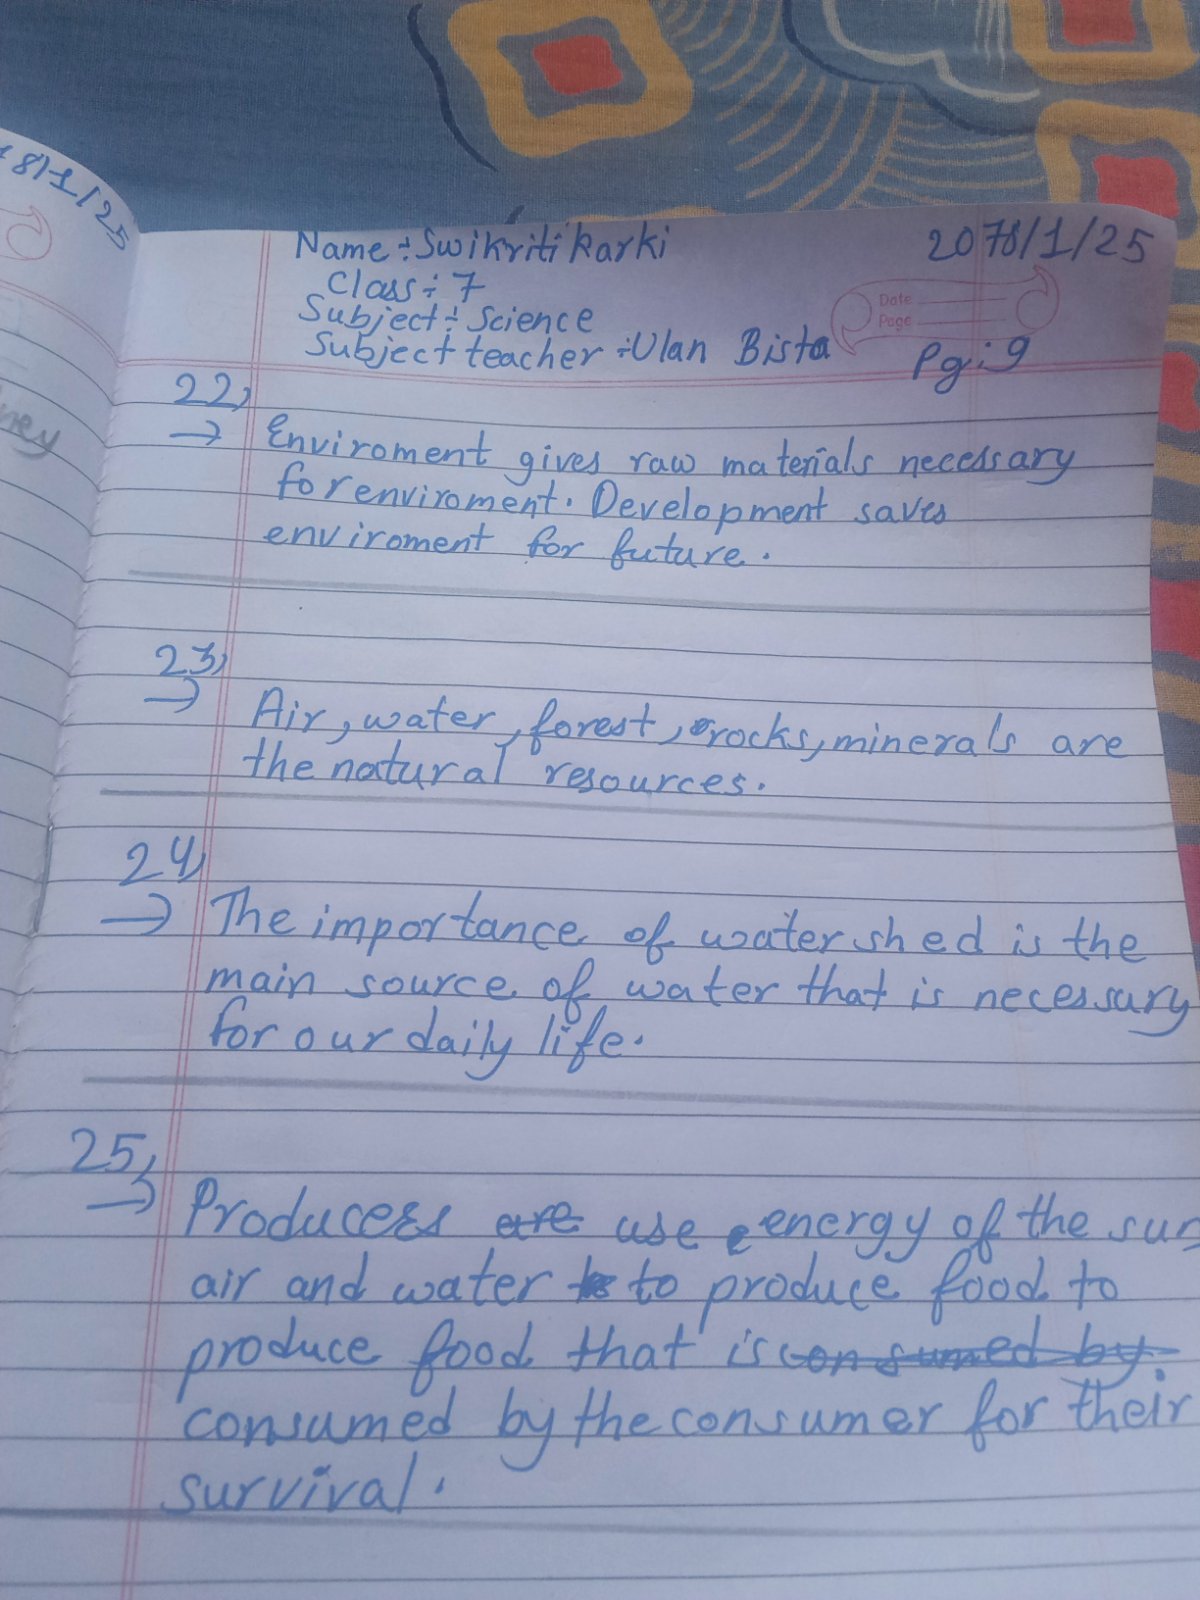 18/1/25
ney
Name :- Swikriti Karki
2078/1/25
Class :- 7
Subject :- Science
Date
Page
Subject teacher :- Ulan Bista
Pg:9
22,
→ Enviroment gives raw materials necessary
for enviroment. Development saves
enviroment for future.
23,
→ Air, water, forest, rocks, minerals are
the natural resources.
24,
→ The importance of watershed is the
main source of water that is necessary
for our daily life.
25,
→ Producers are use energy of the sun
air and water to produce food to
produce food that is consumed by
consumed by the consumer for their
survival.